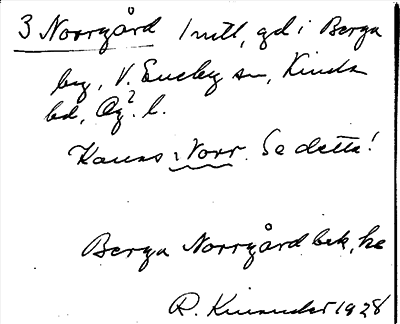 3 Norrgård 1 mtl, gd i Berga
by, V. Eneby sn, Kinda
hd, Ög. l.
?
Kallas : Norr. Se detta!
Berga Norrgård bek, he
R. Kinander 1928